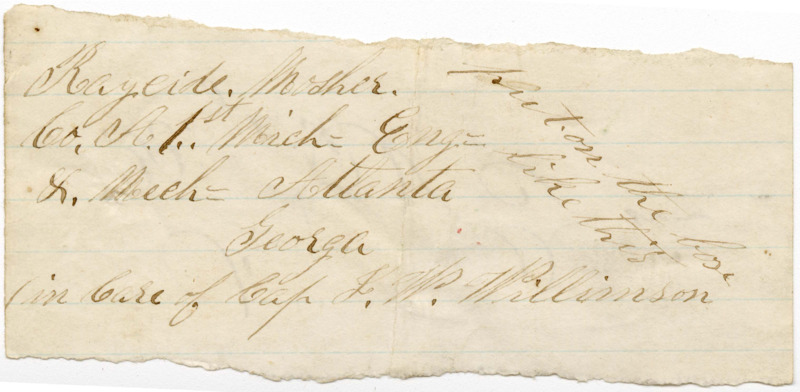 Rayeide. Mosher.
Co. A. 1.st Mich= Eng=
&. Mech= Atlanta
Georga
(in Care of Cap F. W. Willimson
Put on the box
like this